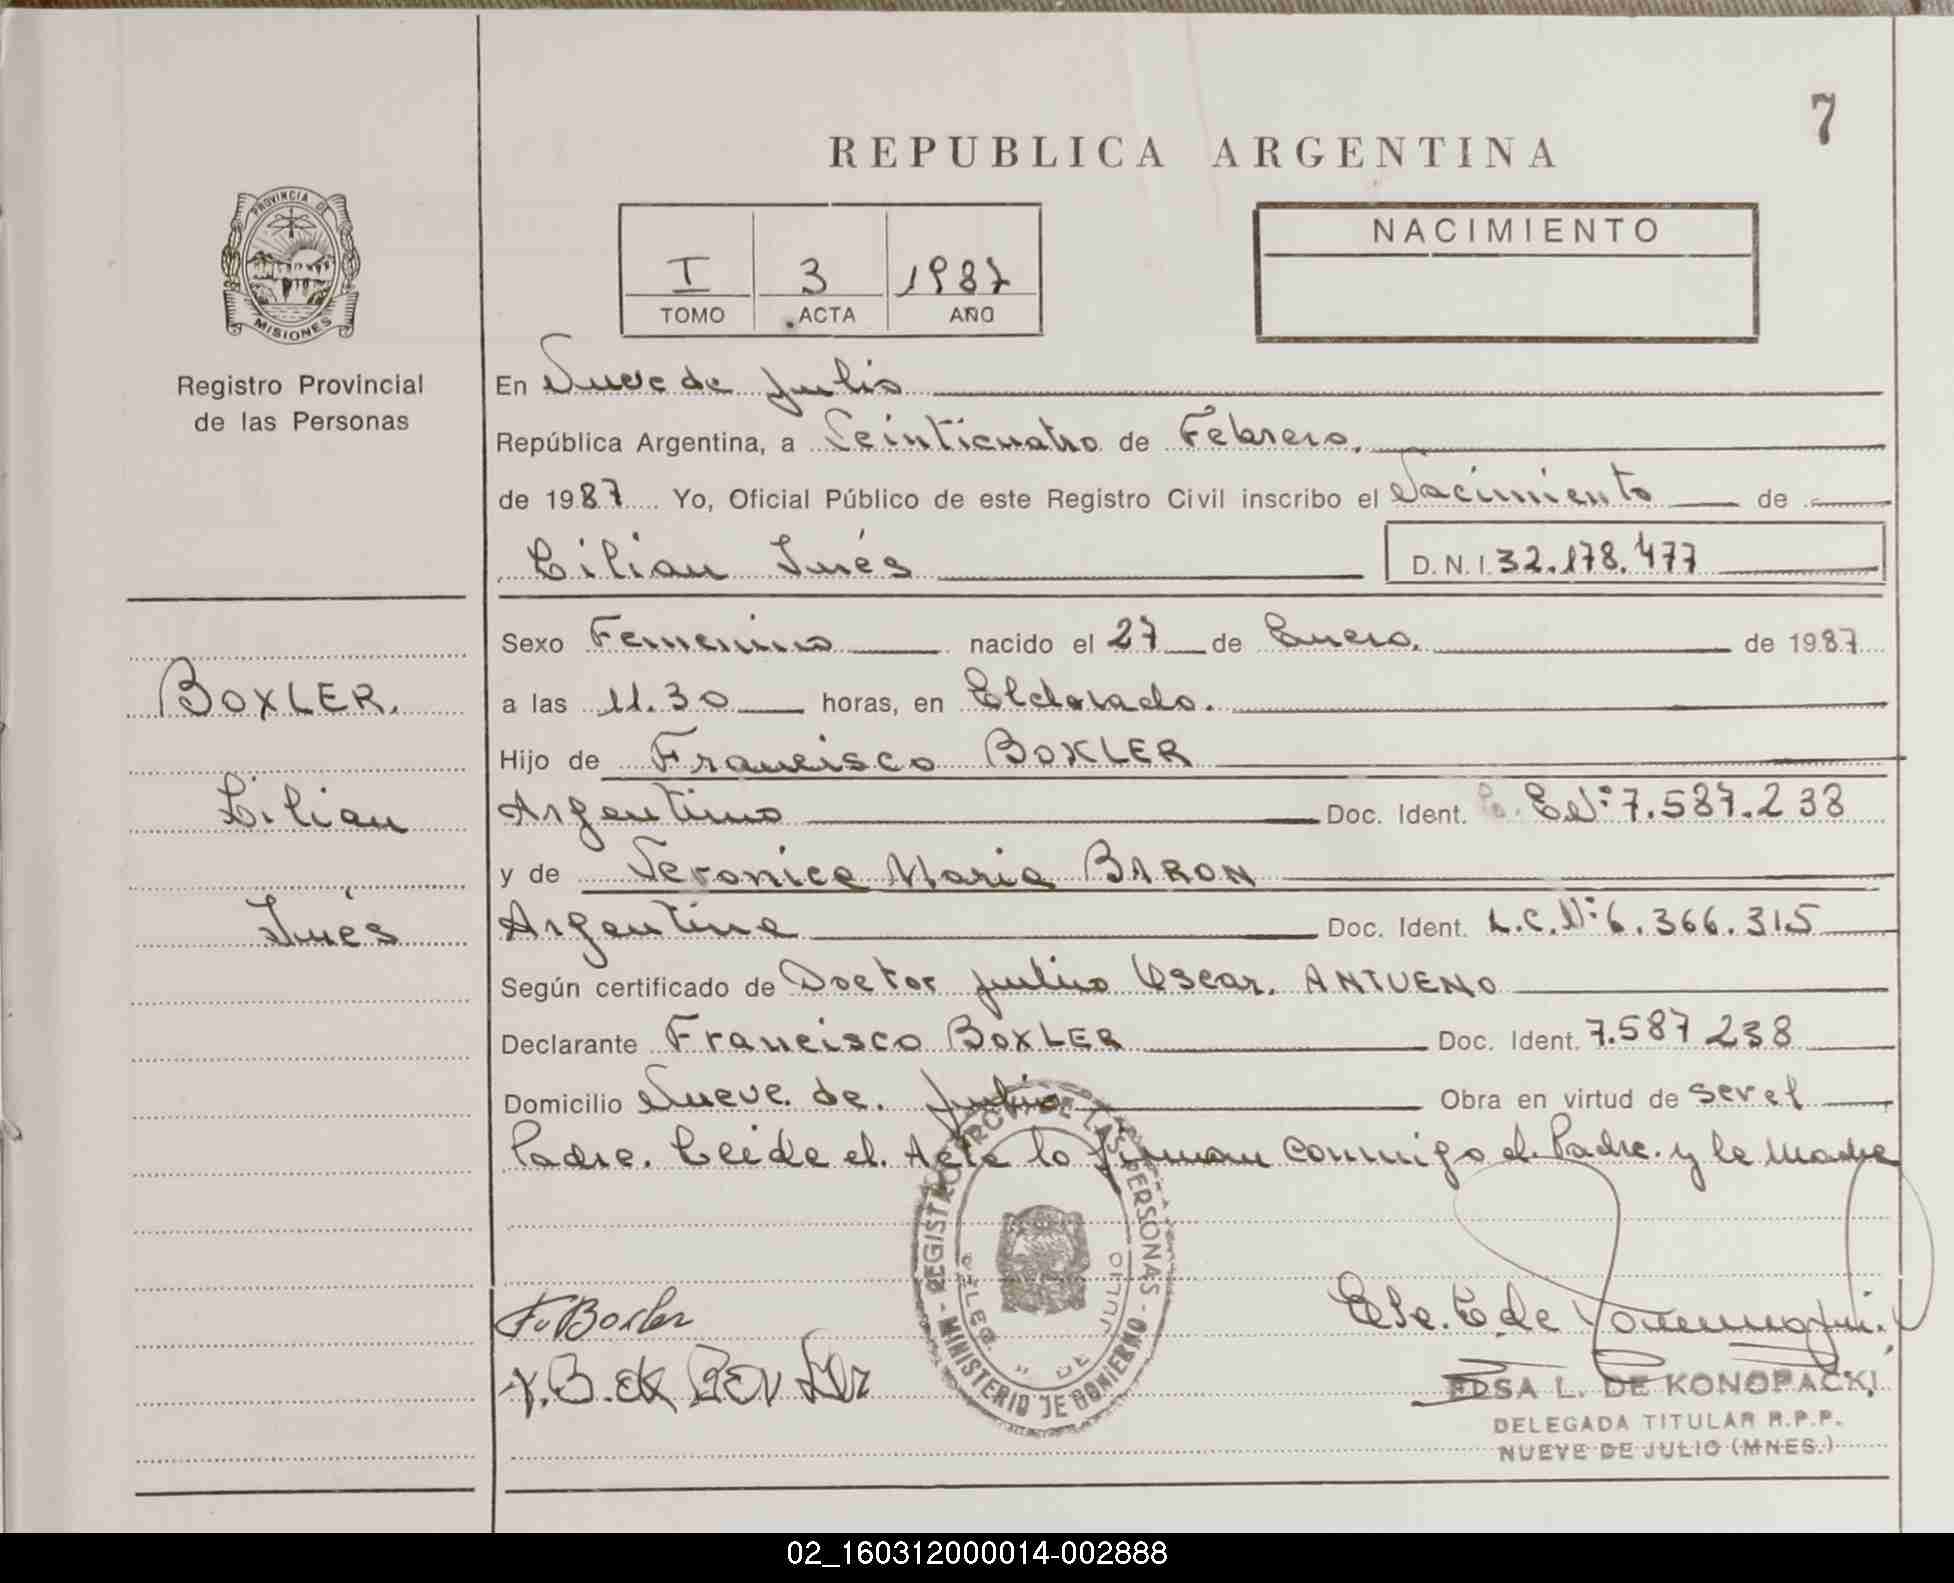 7
REPUBLICA ARGENTINA
PROVINCIA DE
MISIONES
Registro Provincial
de las Personas
I 3 1987
TOMO ACTA AÑO
NACIMIENTO
En Nueve de Julio
República Argentina, a Veinticuatro de Febrero.
de 1987 Yo, Oficial Público de este Registro Civil inscribo el Nacimiento de
Lilian Inés D.N.I. 32.178.477
Sexo Femenino nacido el 27 de Enero. de 1987
BOXLER.
a las 11.30 horas, en Eldorado.
Hijo de Francisco BOXLER
Lilian
Argentino Doc. Ident. N° 7.587.238
y de Veronica Maria BARON
Inés
Argentina Doc. Ident. L.C. N° 6.366.315
Según certificado de Doctor Julio Oscar. ANTUENO
Declarante Francisco BOXLER Doc. Ident. 7.587 238
Domicilio Nueve de Julio Obra en virtud de ser el
Padre. Leida el Acta lo firman conmigo el Padre y la Madre
REGISTRO PROV. DE LAS PERSONAS
MINISTERIO DE GOBIERNO
DELEG. 9 DE JULIO
F. Boxler
ELSA L. DE KONOPACKI
DELEGADA TITULAR R.P.P.
NUEVE DE JULIO (MNES.)
02_160312000014-002888